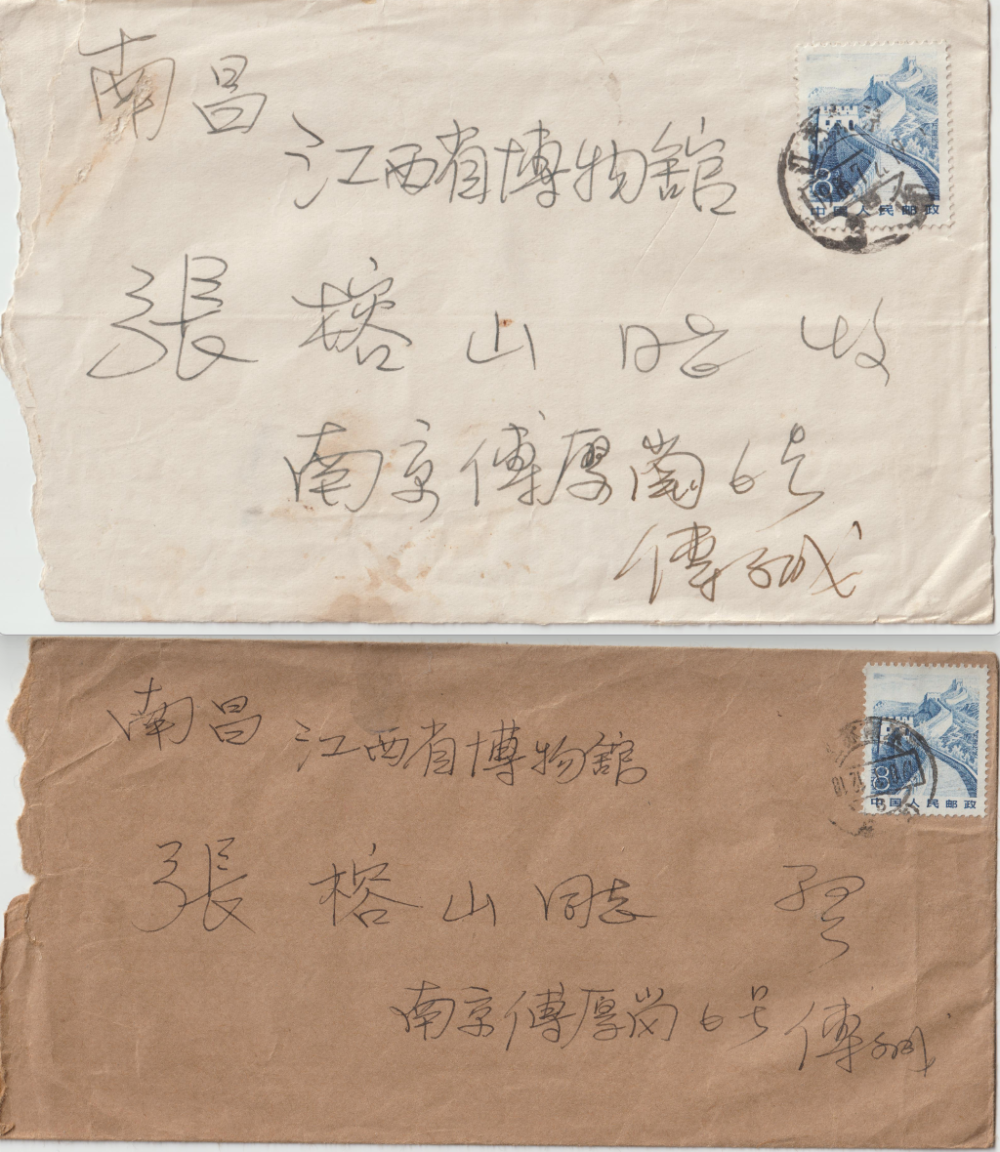 南昌
江西省博物館
8
中国人民邮政
張榕山同志收
南京傅厚崗6号
傅
南昌
江西省博物館
8
中国人民邮政
張榕山同志
南京傅厚岗6号 傅